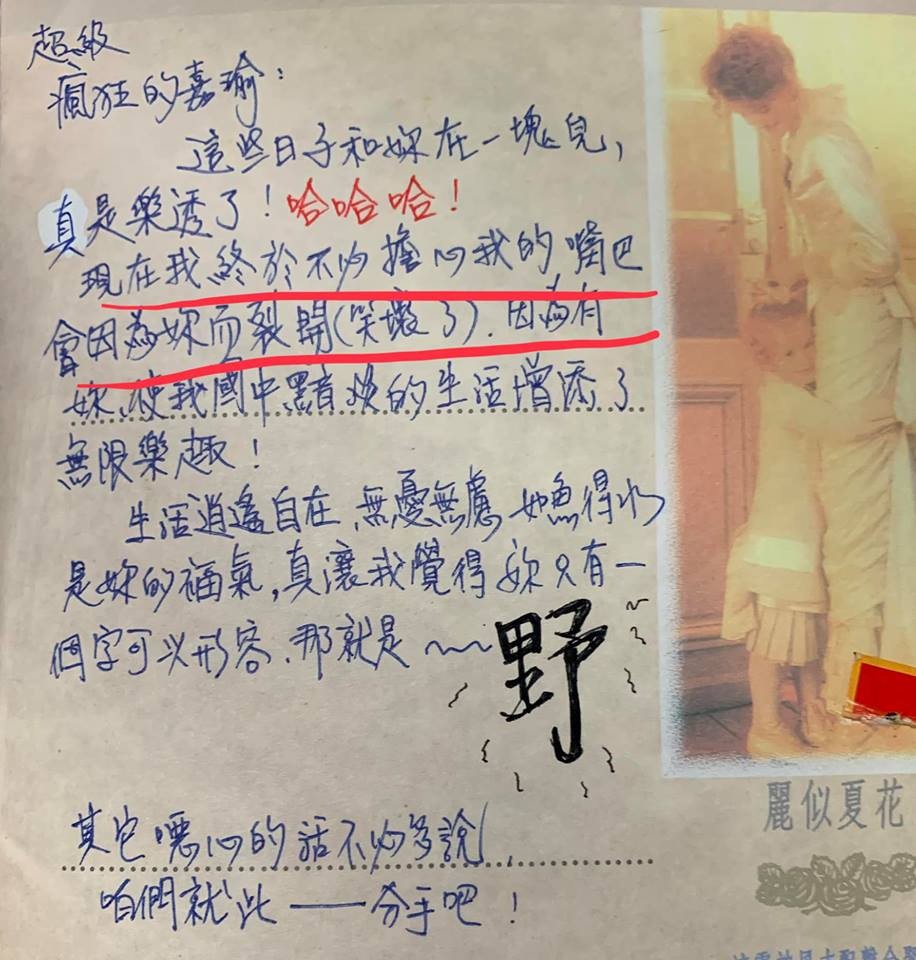 超級
瘋狂的嘉瑜：
這些日子和妳在一塊兒，
真是樂透了！哈哈哈！
現在我終於不必擔心我的嘴巴
會因為妳而裂開(笑壞了)．因為有
妳、使我國中黯淡的生活增添了
無限樂趣！
生活逍遙自在、無憂無慮 如魚得水
是妳的福氣，真讓我覺得妳只有一
個字可以形容．那就是～～野
其它噁心的話不必多說，
咱們就此——分手吧！
麗似夏花